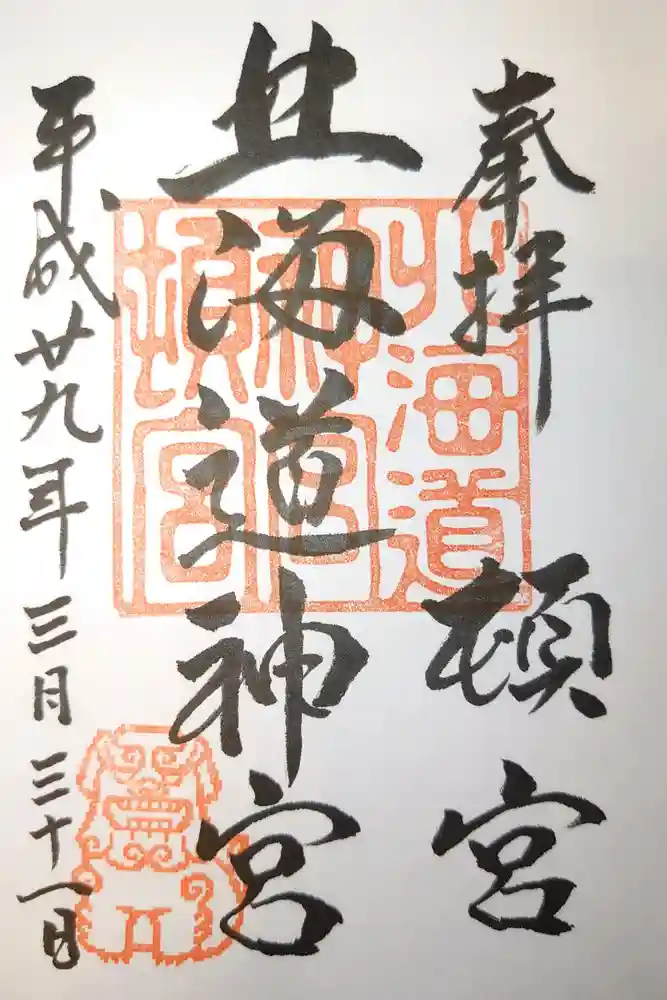 奉拝 頓宮
北海道神宮
平成廿九年三月三十一日
北海道
神宮
頓宮